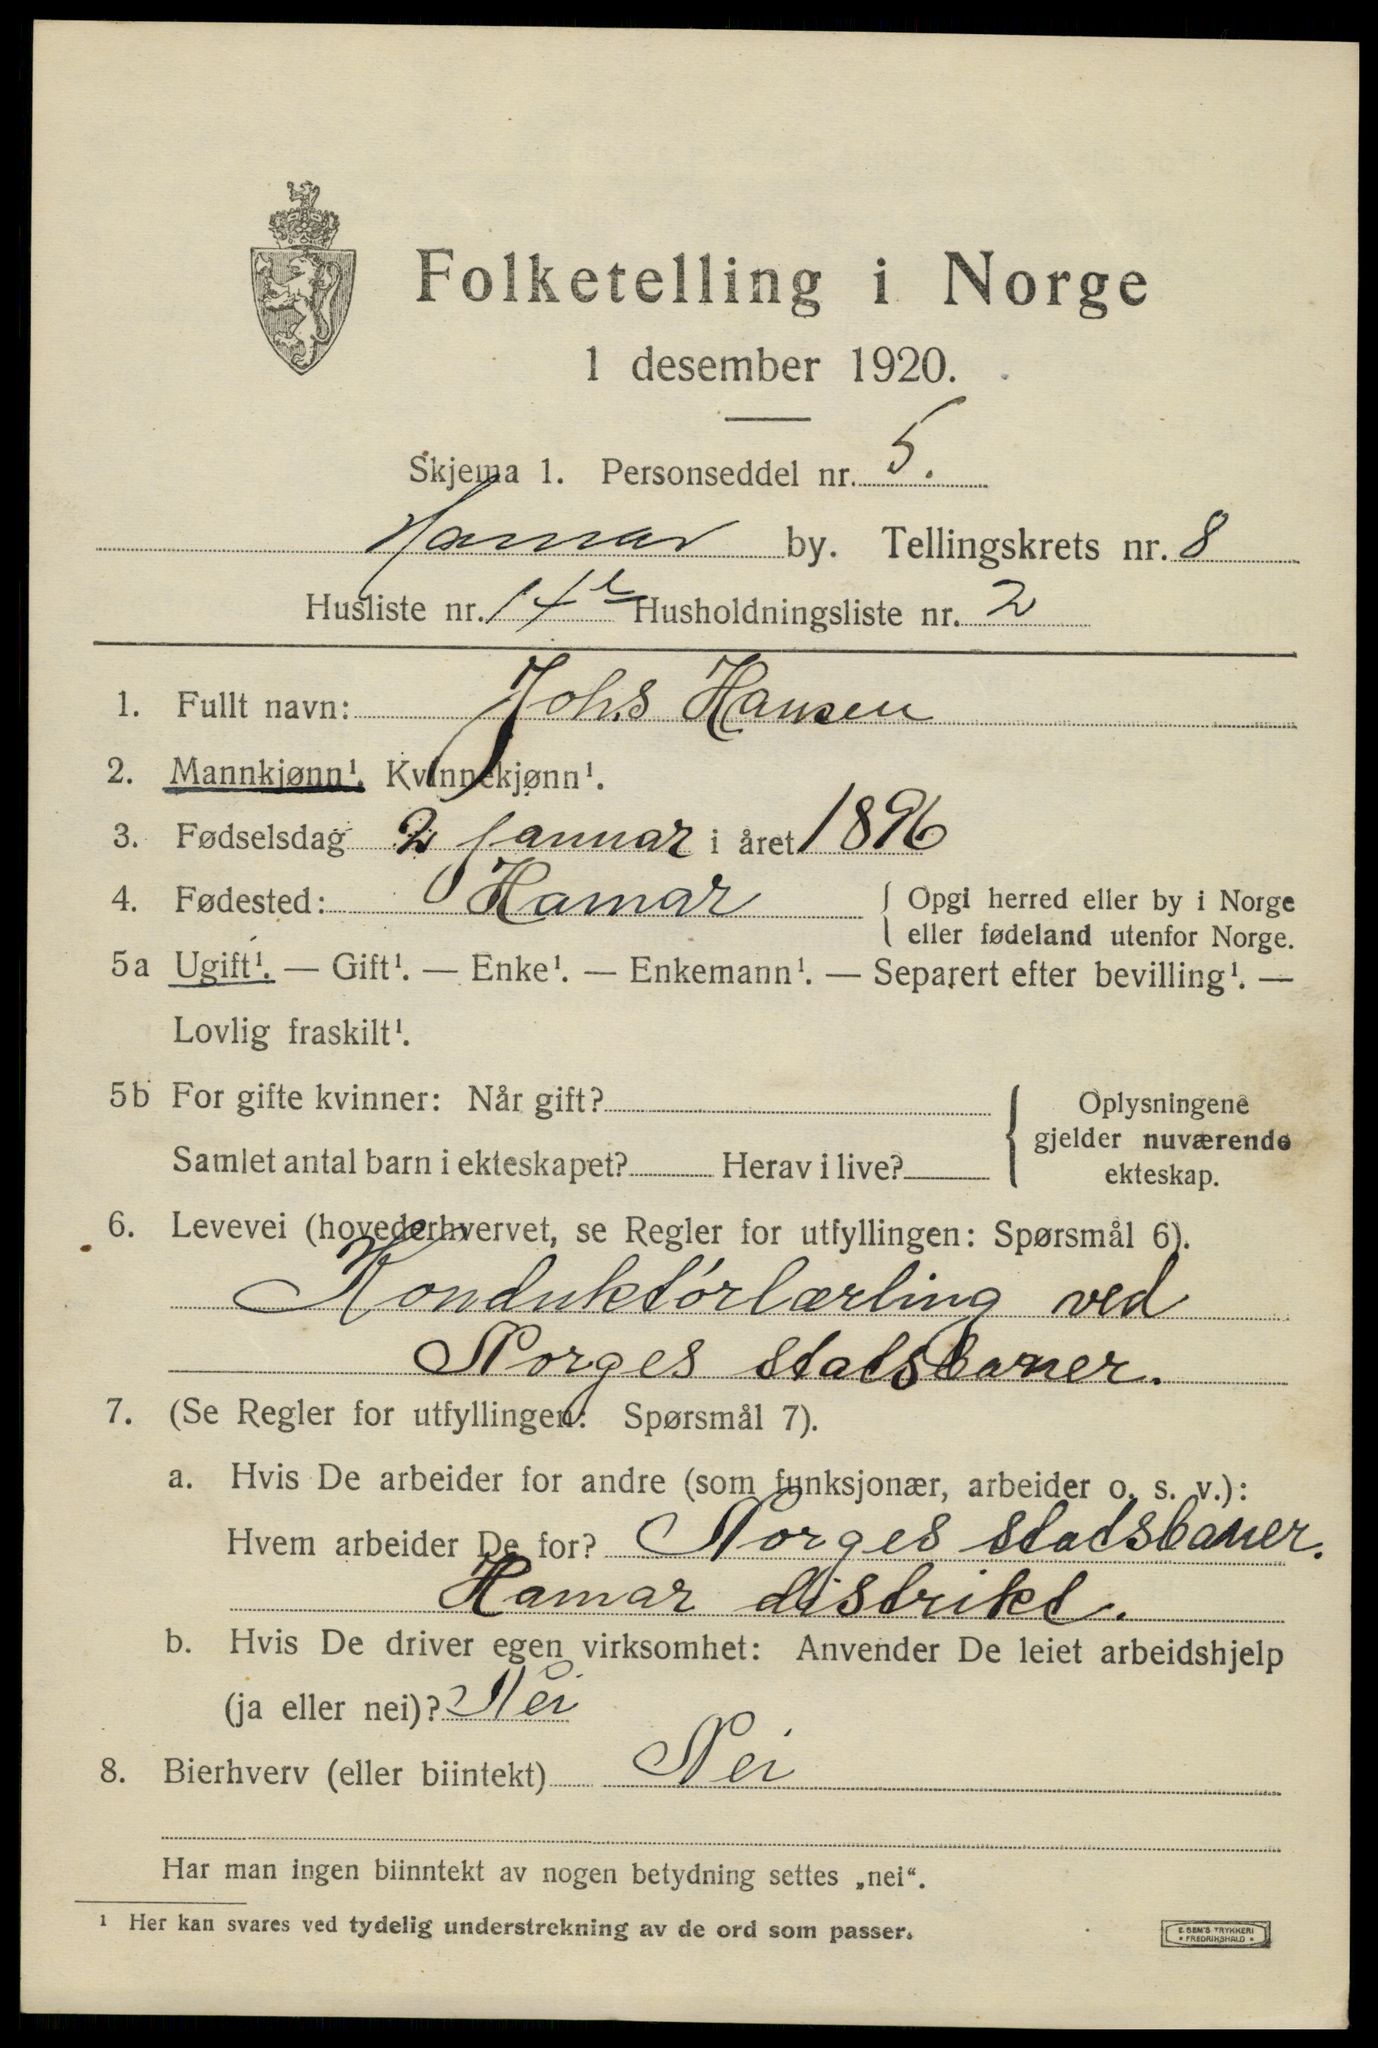 Folketelling i Norge
1 desember 1920.
Skjema 1. Personseddel nr. 5.
Hamar by. Tellingskrets nr. 8
Husliste nr. 14 Husholdningsliste nr. 2
1. Fullt navn: Johs Hansen
2. Mannkjønn¹. Kvinnekjønn¹.
3. Fødselsdag 2 januar i året 1896
4. Fødested: Hamar { Opgi herred eller by i Norge
eller fødeland utenfor Norge.
5a Ugift¹. — Gift¹. — Enke¹. — Enkemann¹. — Separert efter bevilling¹. —
Lovlig fraskilt¹.
5b For gifte kvinner: Når gift? { Oplysningene
gjelder nuværende
Samlet antal barn i ekteskapet? Herav i live? ekteskap.
6. Levevei (hovederhvervet, se Regler for utfyllingen: Spørsmål 6).
Konduktørlærling ved
Norges statsbaner.
7. (Se Regler for utfyllingen: Spørsmål 7).
a. Hvis De arbeider for andre (som funksjonær, arbeider o. s. v.):
Hvem arbeider De for? Norges statsbaner.
Hamar distrikt.
b. Hvis De driver egen virksomhet: Anvender De leiet arbeidshjelp
(ja eller nei)? Nei
8. Bierhverv (eller biintekt) Nei
Har man ingen biinntekt av nogen betydning settes „nei“.
¹ Her kan svares ved tydelig understrekning av de ord som passer.
E. SEM'S TRYKKERI
• FREDRIKSHALD •